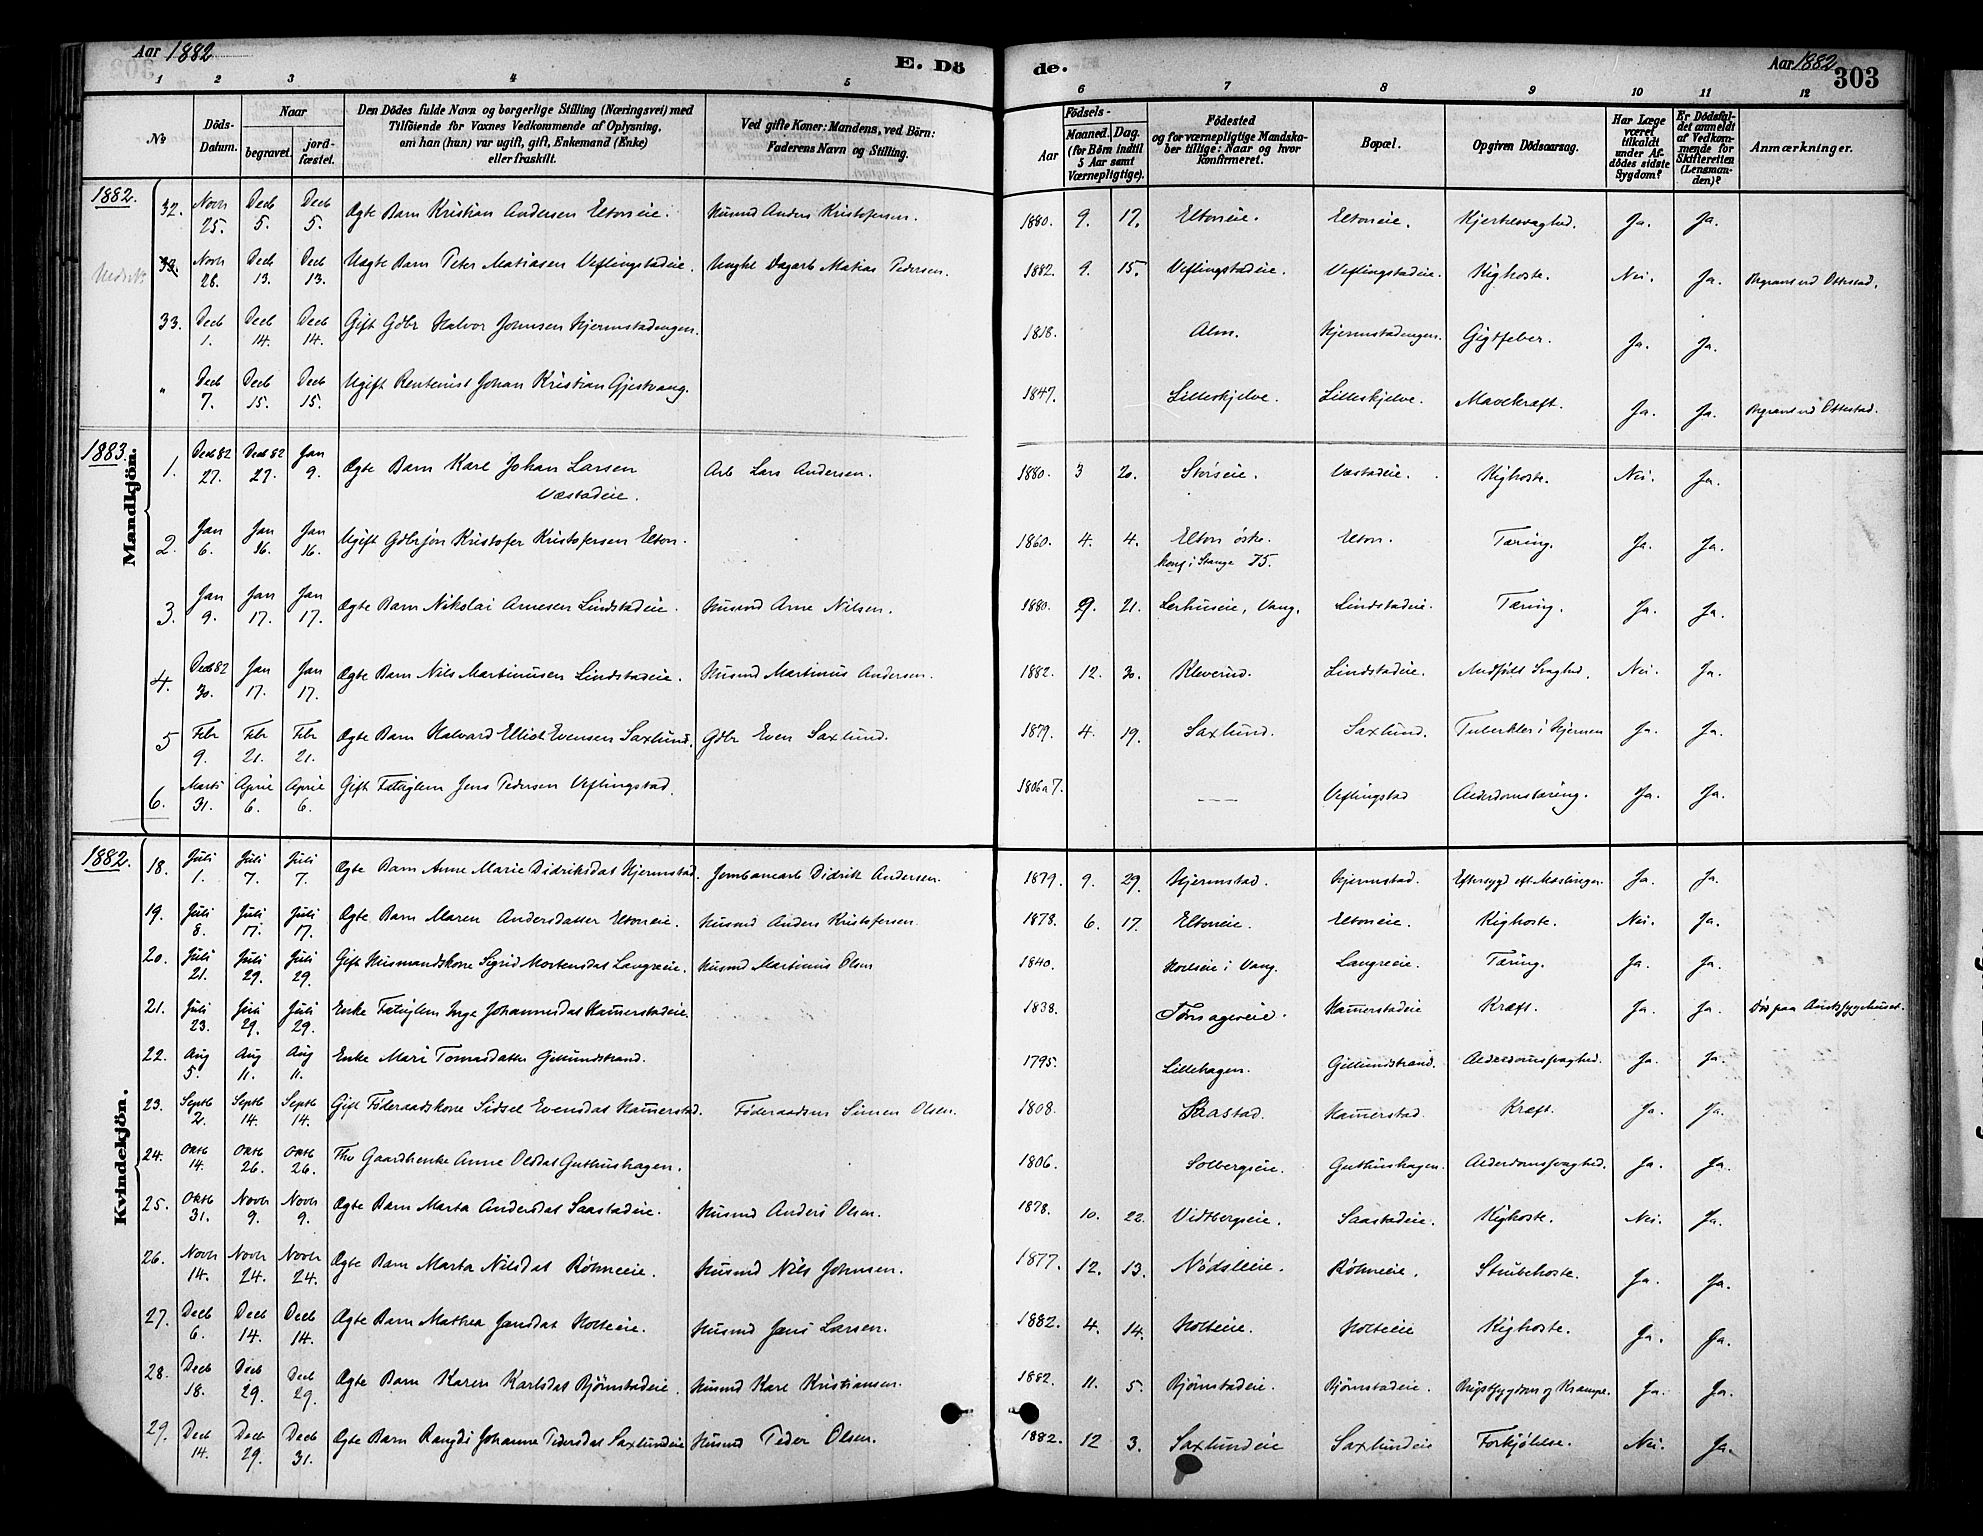 Aar 1882 E. Dö de. Aar 1882 303
1 2 3 4 5 6 7 8 9 10 11 12
No | Döds-Datum. | Naar begravet. | jordfæstet. | Den Dödes fulde Navn og borgerlige Stilling (Næringsvei) med Tilföiende for Voxnes Vedkommende af Oplysning, om han (hun) var ugift, gift, Enkemand (Enke) eller fraskilt. | Ved gifte Koner: Mandens, ved Börn: Faderens Navn og Stilling. | Födsels- Aar | Maaned. | Dag. (for Børn indtil 5 Aar samt Værnepligtige). | Födested og for værnepligtige Mandskaber tillige: Naar og hvor konfirmeret. | Bopæl. | Opgiven Dödsaarsag. | Har Læge været tilkaldt under Afdödes sidste Sygdom? | Er Dödsfaldet anmeldt af Vedkommende for Skifteretten (Lensmanden)? | Anmærkninger.
1882.
32. Novb 25. Decb 5. Decb 5. Ægte Barn Kristian Andersen Eltoneie. Husmd Anders Kristofersen. 1880. 9. 17. Eltoneie. Eltoneie. Hjertesvaghed. Ja. Ja.
33. Novb 28. Decb 13. Decb 13. Uægte Barn Peter Matiasen Veflingstadeie. Ungkl Dagarb Matias Pedersen. 1882. 9. 15. Veflingstadeie. Veflingstadeie. Kighoste. Nei. Ja. Begravet ved Ottestad.
33. Decb 1. Decb 14. Decb 14. Gift Gdbr Halvor Johnsen Hjermstadengen. 1818. Alm. Hjermstadengen. Gigtfeber. Ja. Ja.
" Decb 7. Decb 15. Decb 15. Ugift Rentenist Johan Kristian Gjestvang. 1847. Lilleskjelve. Lilleskjelve. Mavekræft. Ja. Ja. Begravet ved Ottestad.
1883. Mandkjön.
1. Decb 82 27. Decb 82 27. Jan 9. Ægte Barn Karl Johan Larsen Væstadeie. Arb Lars Andersen. 1880. 3 20. Storseie. Væstadeie. Kighoste. Nei. Ja.
2. Jan 6. Jan 16. Jan 16. Ugift Gdbrsøn Kristofer Kristofersen Elton. 1860. 4. 4. Elton østre konf i Stange 75. Elton. Tæring. Ja. Ja.
3. Jan 9. Jan 17. Jan 17. Ægte Barn Nikolai Arnesen Lindstadeie. Husmd Arne Nilsen. 1880. 9. 21. Lerhuseie, Vang. Lindstadeie. Tæring. Ja. Ja.
4. Decb 82 30. Jan 17. Jan 17. Ægte Barn Nils Martinusen Lindstadeie. Husmd Martinus Andersen. 1882. 12. 30. Kleverud. Lindstadeie. Medfødt Svaghed. Nei. Ja.
5 Febr 9. Febr 21. Febr 21. Ægte Barn Halvard Elliot Evensen Saxlund. Gdbr Even Saxlund. 1879. 4. 19. Saxlund. Saxlund. Tuberkler i Hjernen Ja. Ja.
6. Marts 31. April 6. April 6. Gift Fattiglem Jens Pedersen Veflingstad. 1806 a 7. — Veflingstad Alderdomstæring. Ja. Ja.
1882. Kvindekjön.
18. Juli 1. Juli 7. Juli 7. Ægte Barn Anne Marie Didriksdat Hjermstad. Jernbanearb Didrik Andersen. 1879. 9. 29. Hjermstad. Hjermstad. Eftersygd eft Mæslinger. Ja. Ja.
19. Juli 8. Juli 17. Juli 17. Ægte Barn Maren Andersdatter Eltoneie. Husmd Anders Kristofersen. 1878. 6. 17. Eltoneie. Eltoneie. Kighoste. Nei. Ja.
20. Juli 21. Juli 29. Juli 29. Gift Husmandskone Sigrid Mortensdat Langreie. Husmd Martinus Olsen 1840. Holseie i Vang. Langreie. Tæring. Ja. Ja.
21. Juli 23. Juli 29. Juli 29. Enke Fattiglem Inge Johannesdat Hamerstadeie. 1838. Hamerstadeie Kræft. Ja. Ja. Død paa Amtssygehuset.
22. Aug 5. Aug 11. Aug 11. Enke Mari Tomasdatter Gillundstrand. 1795. Lillehagen. Gillundstrand. Alderdomssvaghed. Ja. Ja.
23. Septb 2. Septb 14. Septb 14. Gift Føderaadskone Sidsel Evensdat Hamerstad. Føderaadsm Simen Olsen. 1808. Saastad. Hamerstad. Kræft. Ja. Ja.
24. Oktb 14. Oktb 26. Oktb 26. Fhv Gaardbenke Anne Olsdat Guthushagen. 1806. Solbergeie. Guthushagen. Alderdomssvaghed. Ja. Ja.
25. Oktb 31. Novb 9. Novb 9. Ægte Barn Marta Andersdat Saastadeie. Husmd Anders Olsen. 1878. 10. 22. Vidtbergeie. Saastadeie. Kighoste. Nei. Ja.
26. Novb 14. Novb 24. Novb 24. Ægte Barn Marta Nilsdat Røhneeie. Husmd Nils Johnsen. 1877. 12. 13. Nødsleie. Røhneeie. Strubehoste. Ja. Ja.
27. Decb 6. Decb 14. Decb 14. Ægte Barn Mathea Jensdat Holteie. Husmd Jens Larsen. 1882. 4. 14. Holteie. Holteie Kighoste. Ja. Ja.
28. Decb 18. Decb 29. Decb 29. Ægte Barn Karen Karlsdat Bjørnstadeie. Husmd Karl Kristiansen. 1882. 11. 5. Bjørnstadeie. Bjørnstadeie. Brystsygdom og Krampe. Ja. Ja.
29. Decb 14. Decb 29. Decb 31. Ægte Barn Rangdi Johanne Pedersdat Saxlundeie Husmd Peder Olsen. 1882. 12 3. Saxlundeie Saxlundeie Forkjølelse. Nei. Ja.